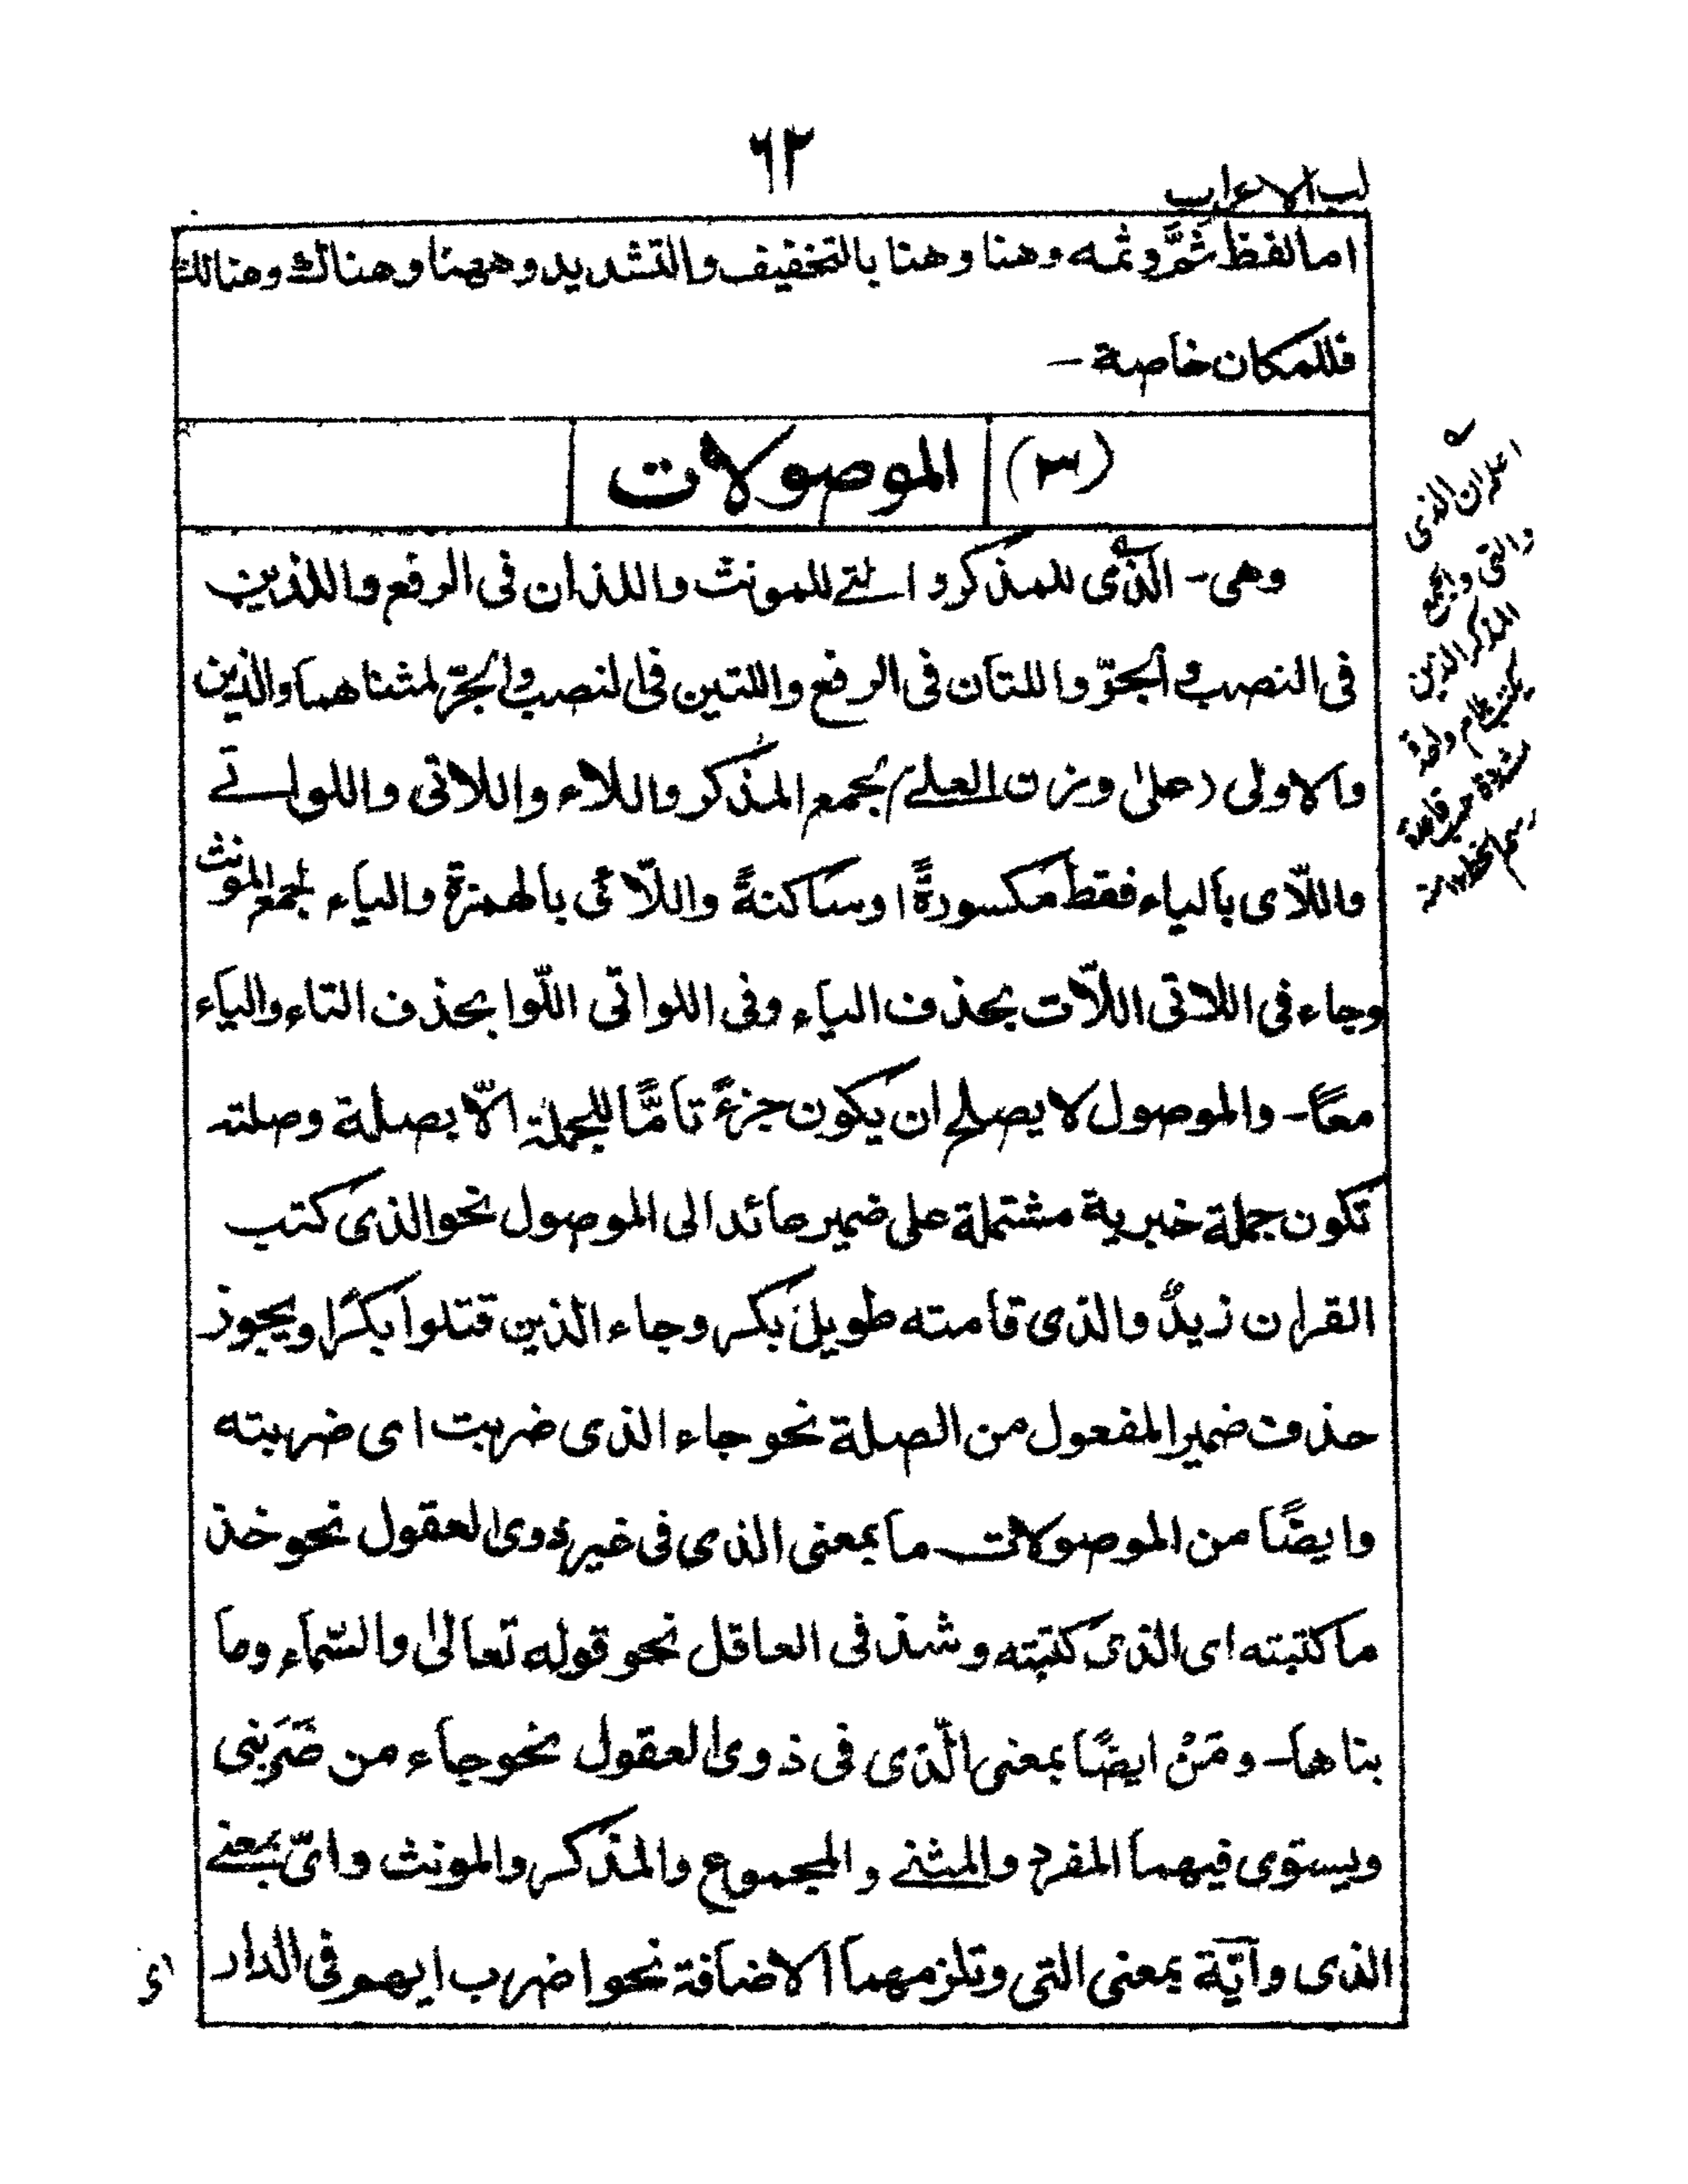 ٦٢
لب الاعراب
اما لفظ ثَمَّ وثمه وهنا وهنا بالتخفيف والتشديد وههنا وهناك وهنالك
فللمكان خاصة -
(٣) الموصولات
وهى - الذى للمذكر والتے للمونث واللذان فى الرفع واللذين
فى النصب والجرّ واللتان فى الرفع واللتين فى النصب والجرّ لمثناهما والذين
والاولى (على وزن العلے) لجمع المذكر واللاء واللاتى واللواتے
واللّاى بالياء فقط مكسورةً اوساكنةً واللّائى بالهمزة والياء لجمع المونث
وجاء فى اللاتى اللّات بحذف الياء وفى اللواتى اللّوا بحذف التاء والياء
معًا - والموصول لا يصلح ان يكون جزءً تامًّا للجملة الّا بصلة وصلته
تكون جملة خبرية مشتملة على ضمير عائد الى الموصول نحو الذى كتب
القران زيدٌ والذى قامته طويل بكر وجاء الذين قتلوا بكرًا ويجوز
حذف ضمير المفعول من الصلة نحو جاء الذى ضربت اى ضربته
وايضًا من الموصولات ما بمعنى الذى فى غير ذوى العقول نحو خذ
ما كتبته اى الذى كتبته وشذ فى العاقل نحو قوله تعالىٰ والسّماء وما
بناها - ومَنْ ايضًا بمعنى الّذى فى ذوى العقول نحو جاء من ضَرَبَنى
ويستوى فيهما المفرد والمثنے والمجموع والمذكر والمونث واىّ بمعنے
الذى وآيّة بمعنى التى وتلزمهما الاضافة نحو اضرب ايهم فى الدار
اى
اعلم ان الذى
والتى وجمع
المذكر الذين
يكتب بلام واحدة